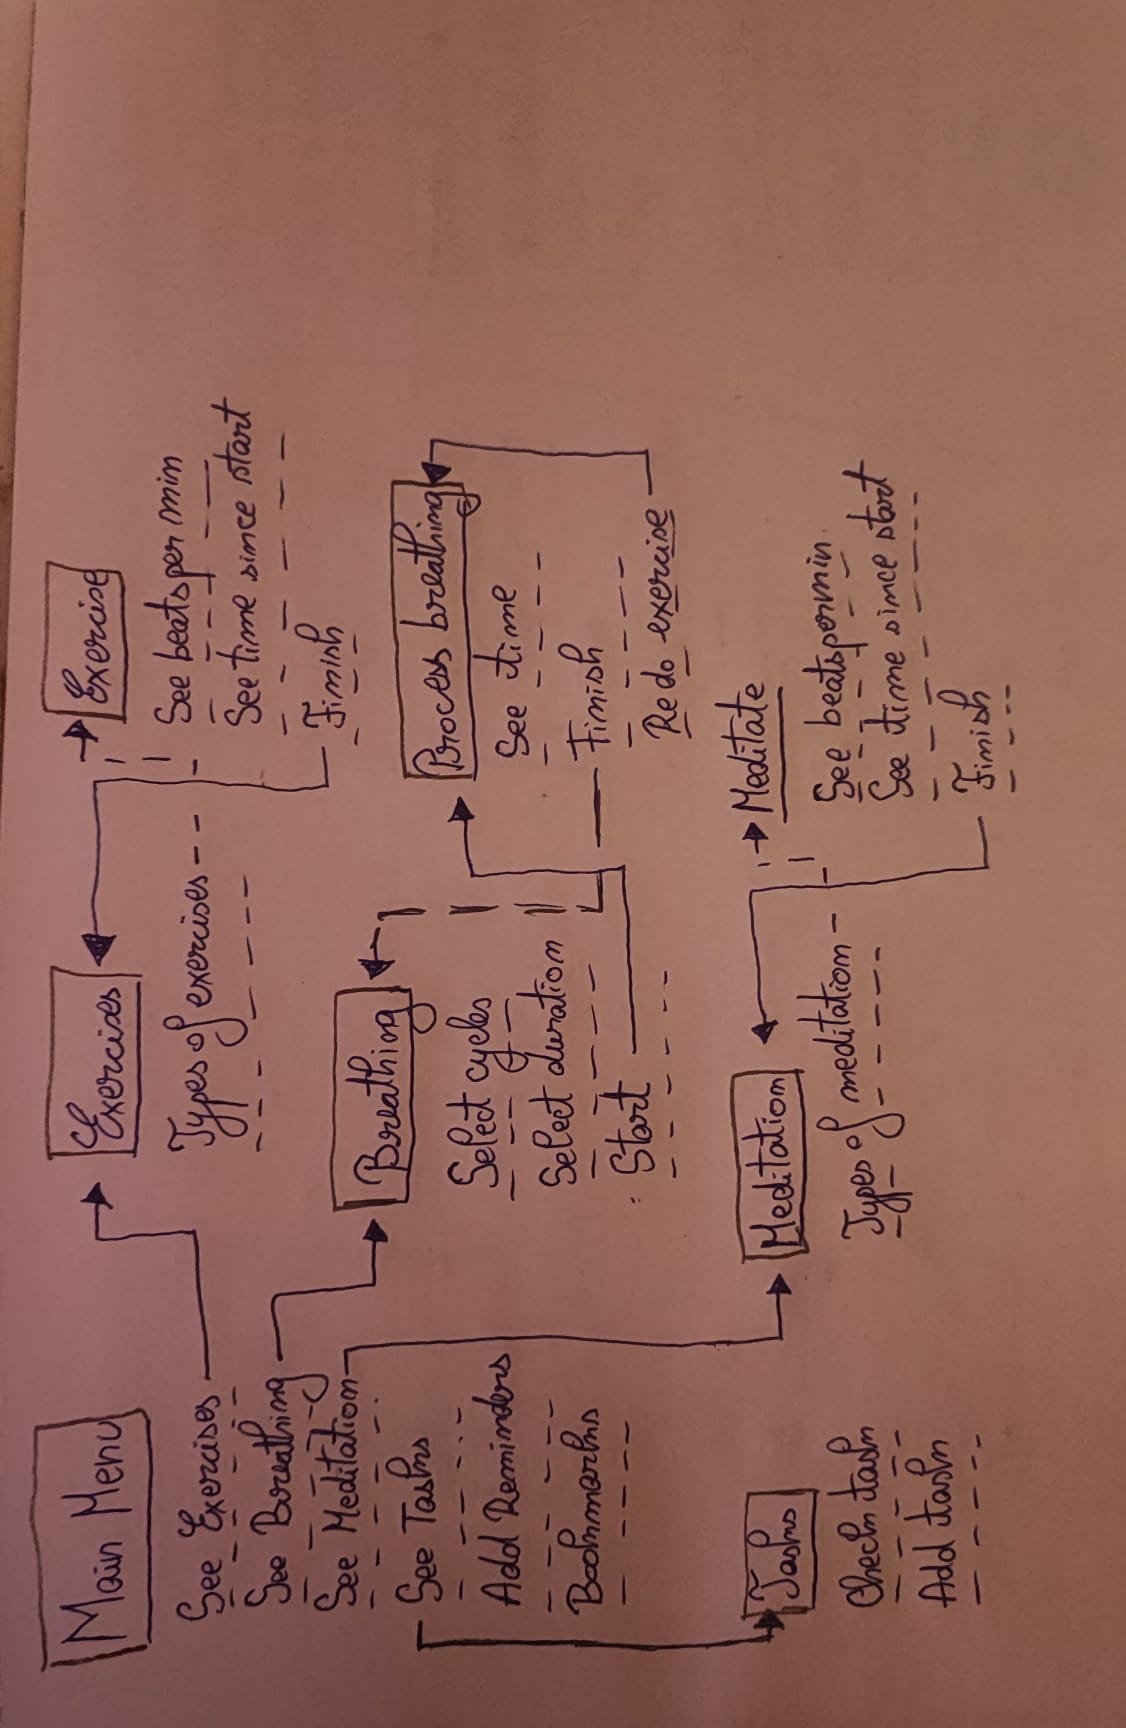 Main Menu
See Exercises
See Breathing
See Meditation
See Tasks
Add Reminders
Bookmarks
Exercises
Types of exercises
Exercise
See beats per min
See time since start
Finish
Breathing
Select cycles
Select duration
Start
Process breathing
See time
Finish
Redo exercise
Tasks
Check task
Add task
Meditation
Types of meditation
Meditate
See beats per min.
See time since start
Finish